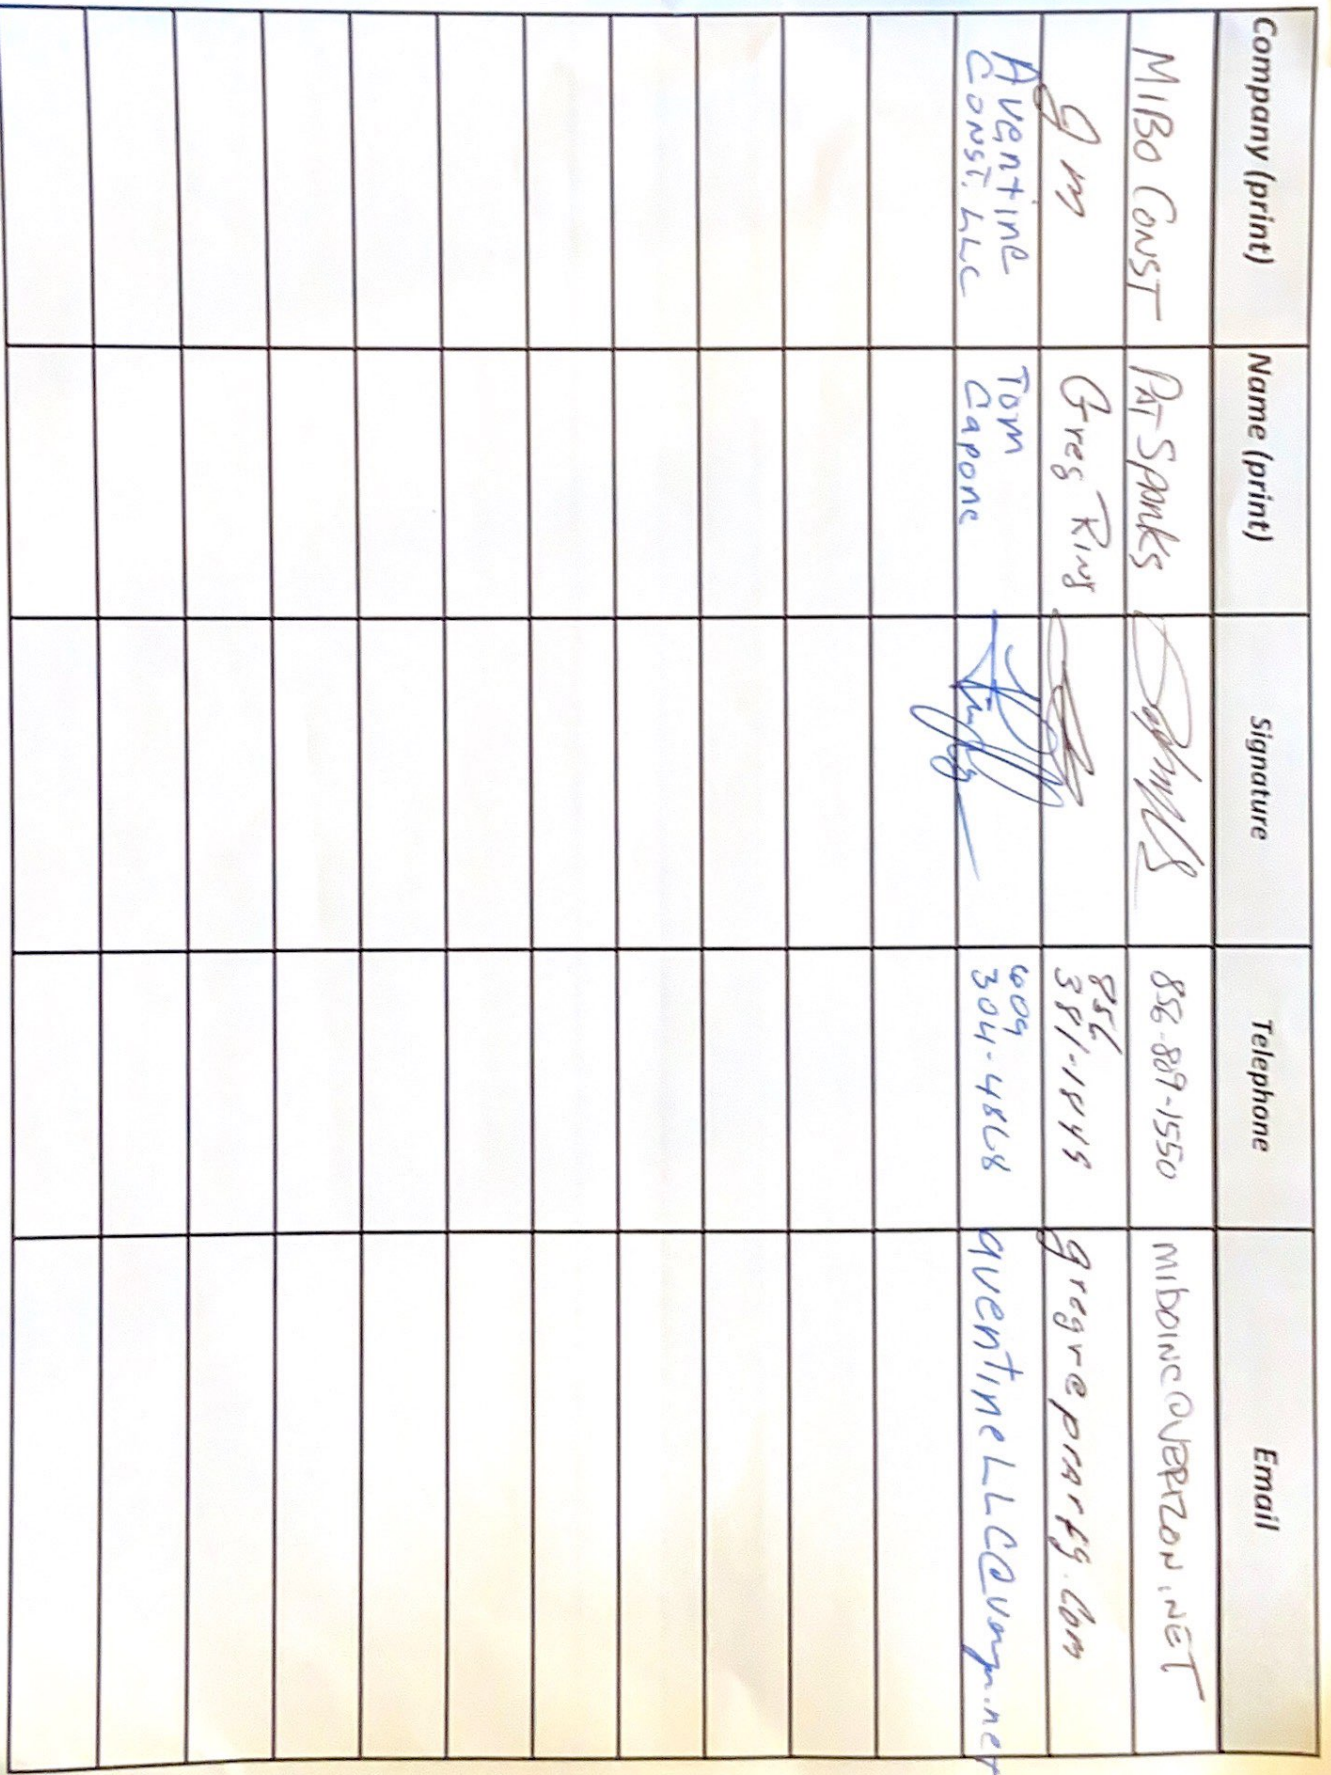 Company (print) Name (print) Signature Telephone Email
MIBO CONST PAT SPARKS 856-889-1550 MIBOINC@VERIZON.NET
Greg Ring 856
381-1849
Aventine Tom 609
Const. LLC Capone 304-4868 aventineLLC@ .net